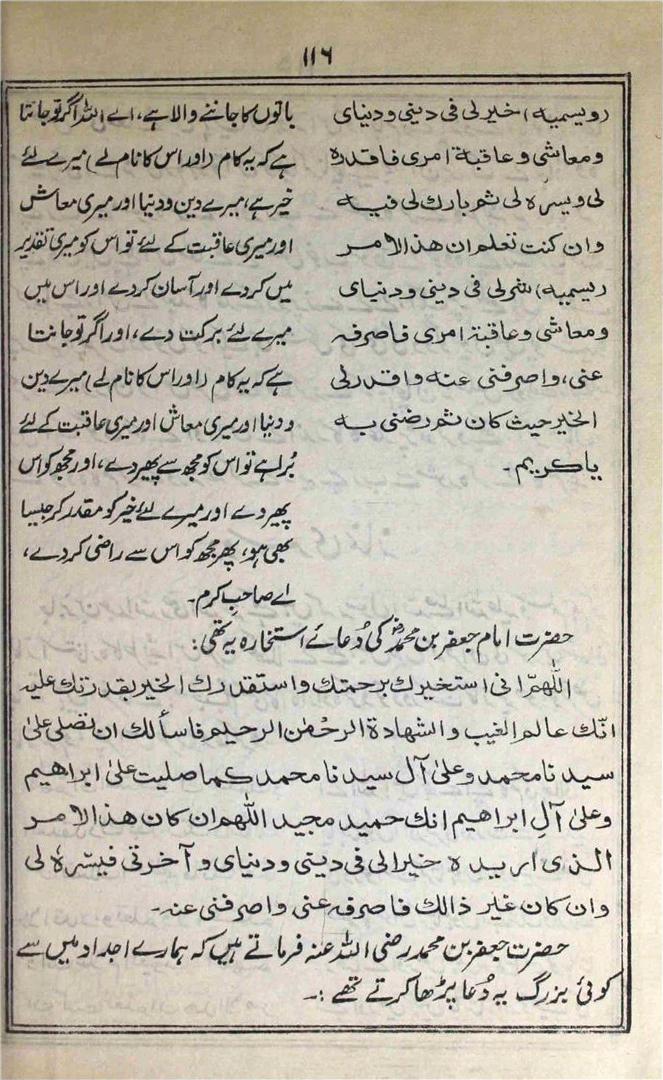 ۱۱۶
(ویسمیہ) خیر لی فی دینی و دنیای
و معاشی و عاقبة امری فاقدرہ
لی و یسرہ لی ثم بارك لی فیہ
وان کنت تعلم ان هذا الامر
(یسمیہ) شر لی فی دینی و دنیای
و معاشی و عاقبة امری فاصرفہ
عنی، واصرفنی عنہ واقدر لی
الخیر حیث کان ثم رضنی بہ
یا کریم۔
باتوں کا جاننے والا ہے، اے اللہ اگر تو جانتا
ہے کہ یہ کام (اور اس کا نام لے) میرے لئے
خیر ہے، میرے دین و دنیا اور میری معاش
اور میری عاقبت کے لئے تو اس کو میری تقدیر
میں کر دے اور آسان کر دے اور اس میں
میرے لئے برکت دے، اور اگر تو جانتا
ہے کہ یہ کام (اور اس کا نام لے) میرے دین
و دنیا اور میری معاش اور میری عاقبت کے لئے
بُرا ہے تو اس کو مجھ سے پھیر دے، اور مجھ کو اس
پھیر دے اور میرے لئے خیر کو مقدر کر جیسا
بھی ہو، پھر مجھ کو اس سے راضی کر دے،
اے صاحبِ کرم۔
حضرت امام جعفر بن محمدؓ کی دُعائے استخارہ یہ تھی:
اللّٰهمّ انی استخیرك برحمتك و استقدرك الخیر بقدرتك علیہ
انّك عالم الغیب والشهادة الرحمٰن الرحیم فاسألك ان تصلی علیٰ
سیدنا محمد و علیٰ آل سیدنا محمد کما صلیت علیٰ ابراهیم
و علیٰ آلِ ابراهیم انك حمید مجید اللٰهم ان کان هذا الامر
الذی اریدہ خیرا لی فی دینی و دنیای و آخرتی فیسّرہُ لی
وان کان غیر ذالك فاصرفہ عنی واصرفنی عنہ۔
حضرت جعفر بن محمد رضی اللہ عنہ فرماتے ہیں کہ ہمارے اجداد میں سے
کوئی بزرگ یہ دُعا پڑھا کرتے تھے :۔